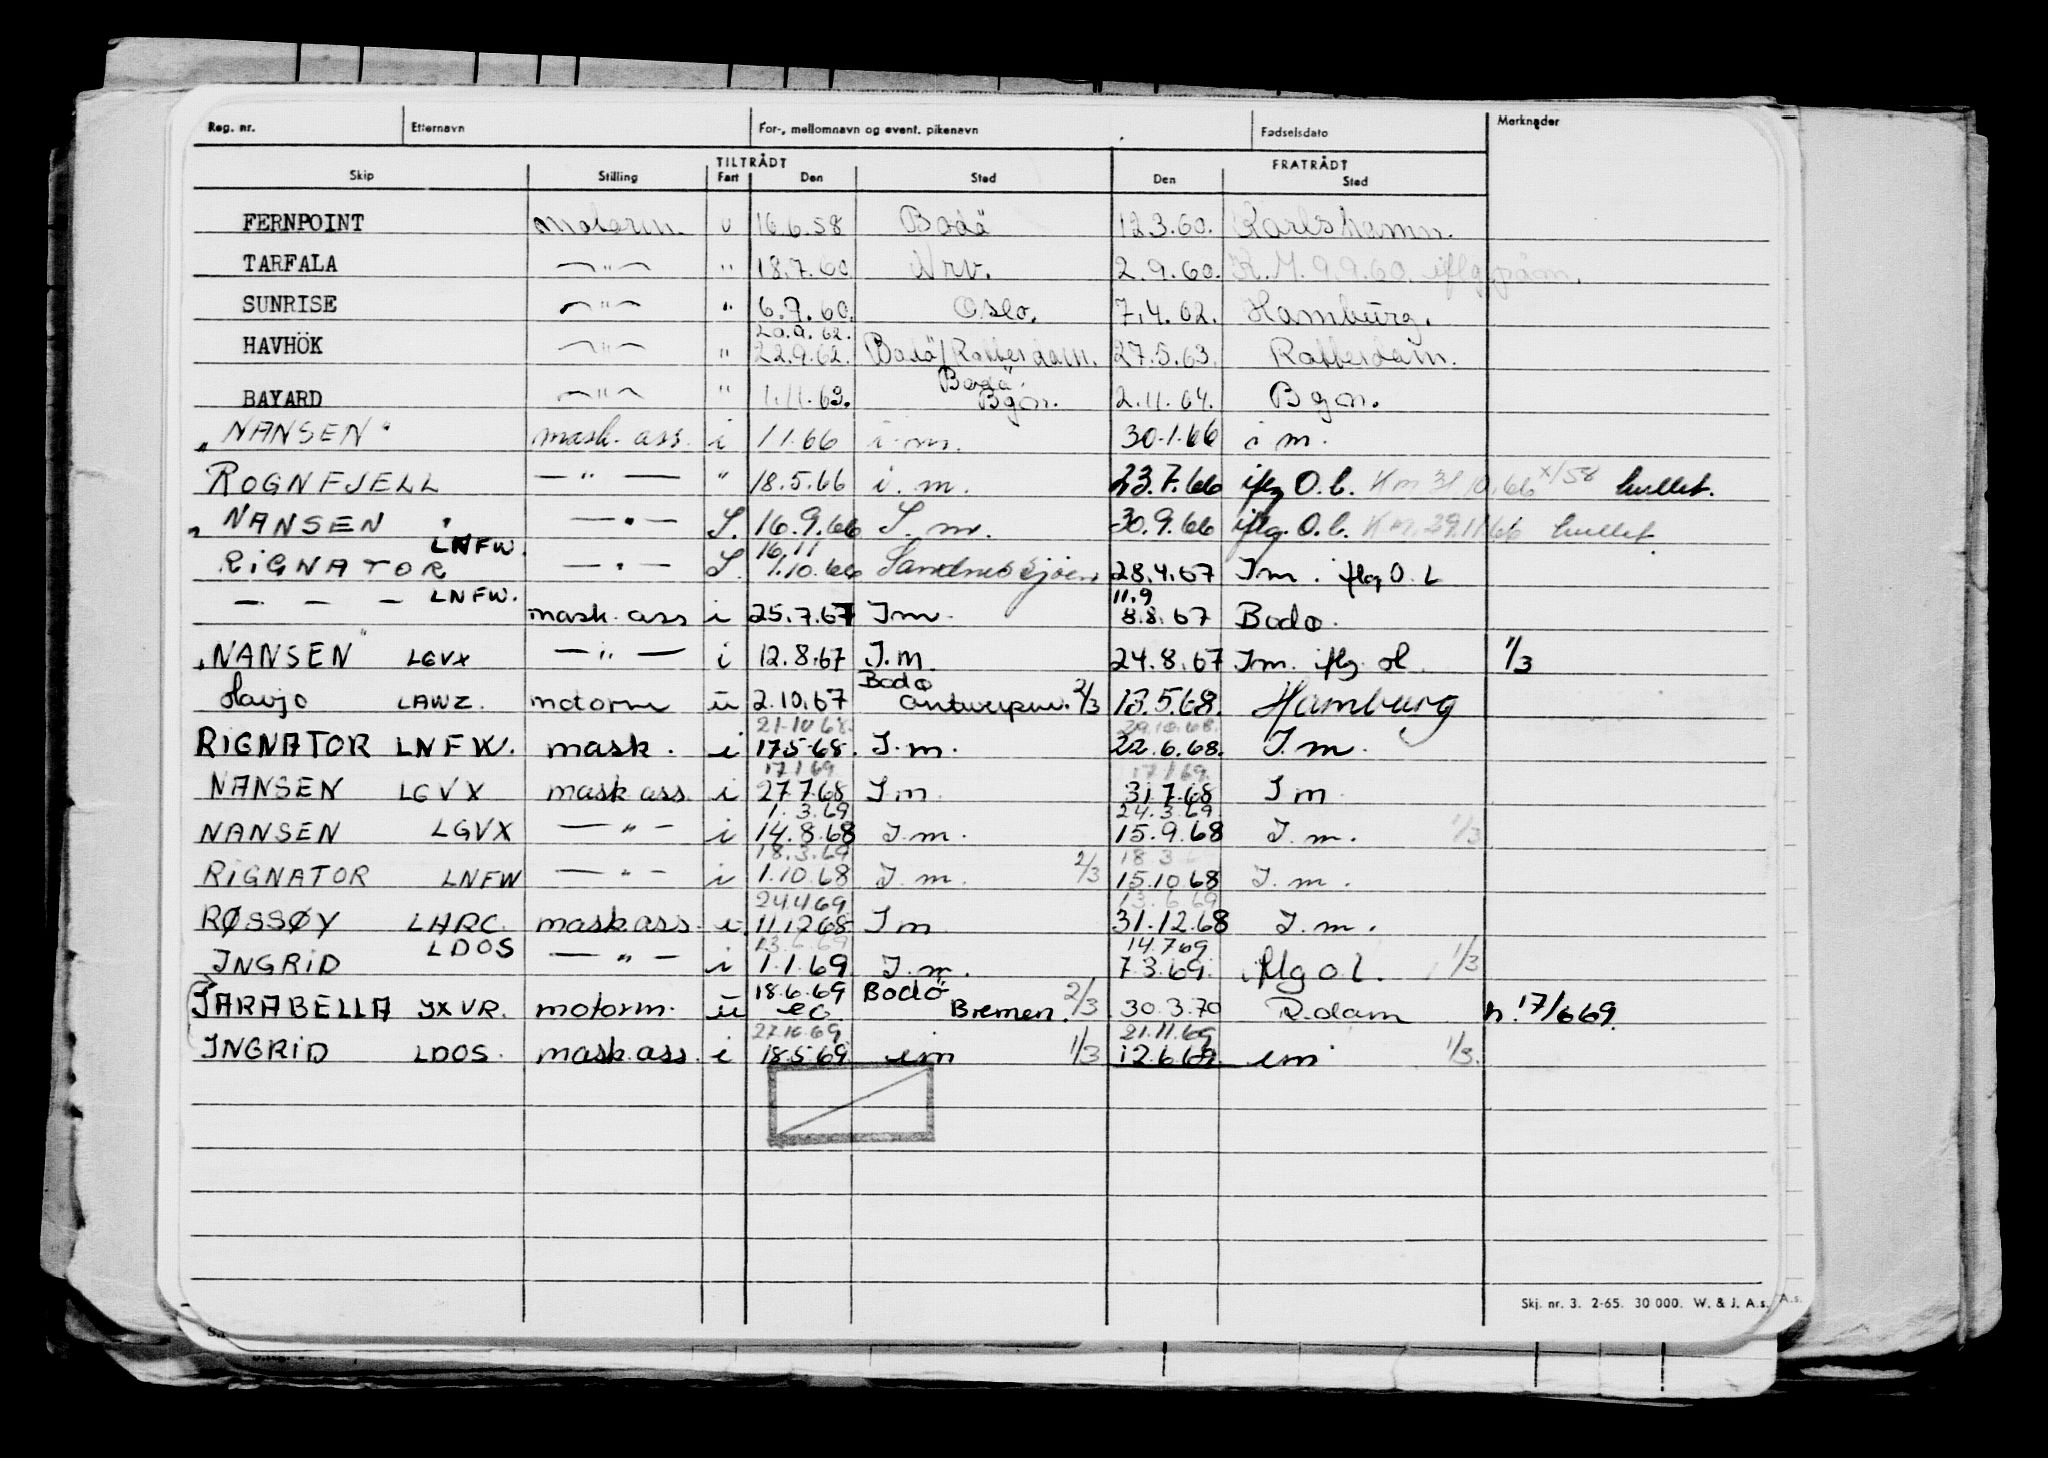 Reg. nr. Etternavn For-, mellomnavn og event. pikenavn Fødselsdato Merknader
TILTRÅDT FRATRÅDT
Skip Stilling Fart Den Sted Den Sted
FERNPOINT motorm. u 16.6.58 Bodö 12.3.60. Karlshamn.
TARFALA —"— " 18.7.60 Nrv. 2.9.60. K.M. 9.9.60. iflg.
SUNRISE —"— " 6.9.60. Oslo. 7.4.62. Hamburg.
20.9.62.
HAVHÖK —"— " 22.9.62. Bodö/Rotterdam. 27.5.63. Rotterdam.
Bodö.
BAYARD —"— " 1.11.63. Bgn. 2.11.64. Bgn.
"NANSEN" mask. ass. i 1.1.66 i.m. 30.1.66 i m.
ROGNFJELL —"— " 18.5.66 i.m. 23.7.66 iflg O.l. Km 31.10.66 x/58 hullet.
"NANSEN" —"— S. 16.9.66 S.m. 30.9.66 iflg. O.l. Km. 29.11.66 hullet.
LNFW. 16.11
RIGNATOR —"— S. 1.10.66 Sandnessjøen 28.4.67 I.m. iflg O.L
LNFW. 11.9
— — — mask. ass i 25.7.67 I m. 8.8.67 Bodø.
"NANSEN" LGVX —"— i 12.8.67 I.m. 24.8.67 I.m. iflg. ol. 1/3
Bodø
Havjo LAWZ. motorm ü 2.10.67 Antwerpen. 2/3 13.5.68. Hamburg
21.10 68. 29.10.68.
RIGNATOR LNFW. mask. i 17.5.68. I.m. 22.6.68. I.m.
17/1 69 17/1 69.
NANSEN LGVX mask ass. i 27.7.68 I m 31.7.68 I m
1.3.69 24.3.69.
NANSEN LGVX —"— i 14.8.68 I.m. 15.9.68 I.m. 1/3
18.3.69 18 3
RIGNATOR LNFW —"— i 1.10.68 I.m. 2/3 15.10.68 I.m.
24.4.69 13.6.69
RØSSØY LHRC. mask.ass. i 11.12.68 I m 31.12.68 I.m.
LDOS 13.6.69 14.7.69
INGRID —"— i 1.1.69 I.m. 7.3.69. iflg o l. 1/3
18.6.69 Bodö
JARABELLA JXVR. motorm. ü Bremen. 2/3 30.3.70 R.dam 17/6 69.
27.10.69 21.11.69
INGRID LDOS. mask.ass. i 18.5.69 im 1/3 12.6.69. im 1/3.
Skj. nr. 3. 2-65. 30 000. W. & J. A.s. A.s.